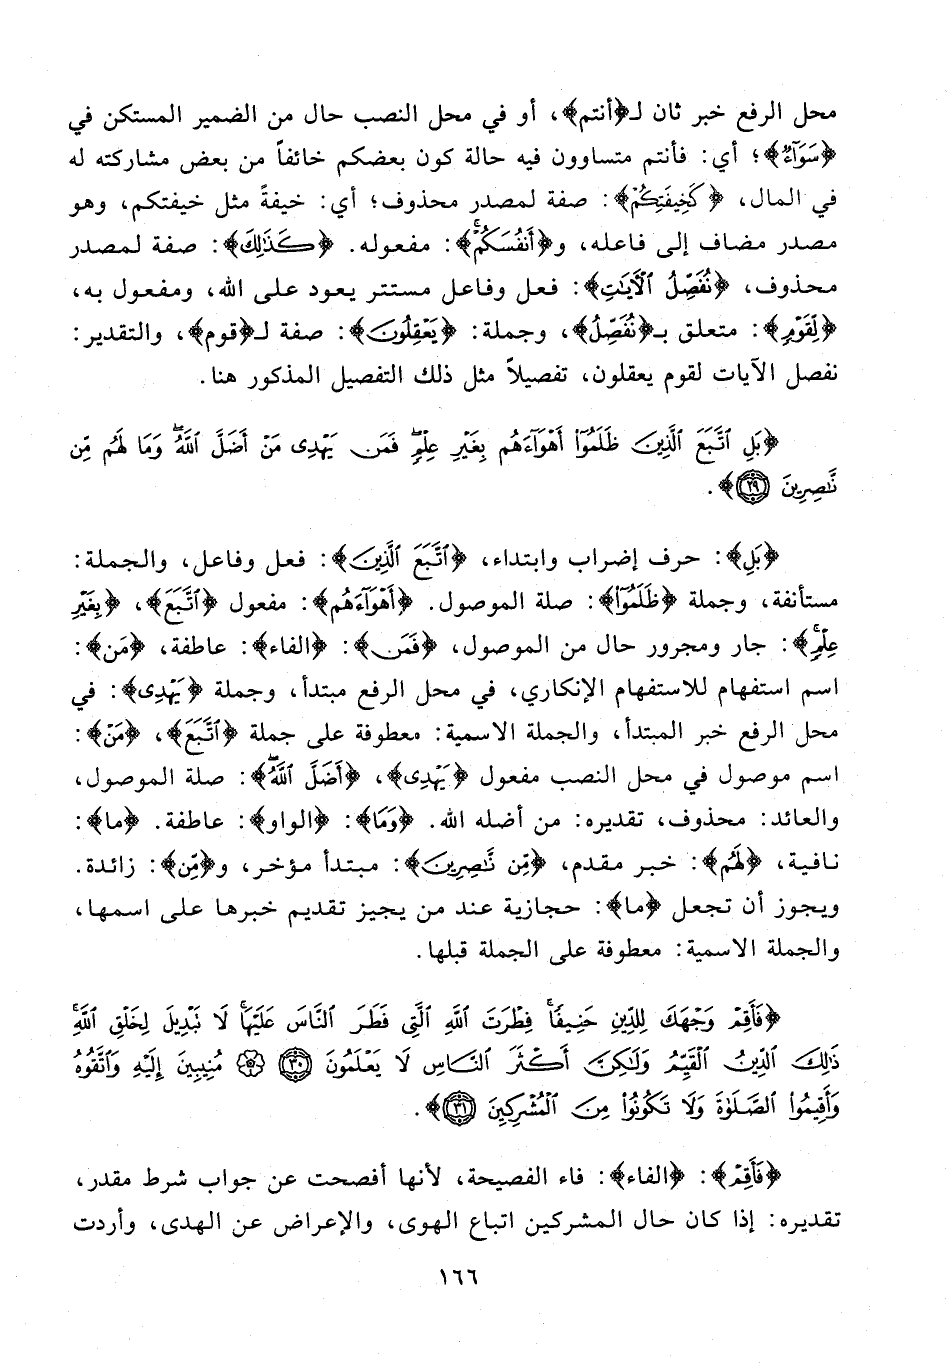 محل الرفع خبر ثان لـ﴿أنتم﴾، أو في محل النصب حال من الضمير المستكن في
﴿سَوَآءٌ﴾؛ أي: فأنتم متساوون فيه حالة كون بعضكم خائفاً من بعض مشاركته له
في المال، ﴿كَخِيفَتِكُمْ﴾: صفة لمصدر محذوف؛ أي: خيفةً مثل خيفتكم، وهو
مصدر مضاف إلى فاعله، و﴿أَنفُسَكُمْۚ﴾: مفعوله. ﴿كَذَٰلِكَ﴾: صفة لمصدر
محذوف، ﴿نُفَصِّلُ ٱلْآيَٰتِ﴾: فعل وفاعل مستتر يعود على الله، ومفعول به،
﴿لِقَوْمٍ﴾: متعلق بـ﴿نُفَصِّلُ﴾، وجملة: ﴿يَعْقِلُونَ﴾: صفة لـ﴿قوم﴾، والتقدير:
نفصل الآيات لقوم يعقلون، تفصيلاً مثل ذلك التفصيل المذكور هنا.
﴿بَلِ ٱتَّبَعَ ٱلَّذِينَ ظَلَمُوٓا۟ أَهْوَآءَهُم بِغَيْرِ عِلْمٍۖ فَمَن يَهْدِى مَنْ أَضَلَّ ٱللَّهُۖ وَمَا لَهُم مِّن
نَّٰصِرِينَ ٢٩﴾.
﴿بَلِ﴾: حرف إضراب وابتداء، ﴿ٱتَّبَعَ ٱلَّذِينَ﴾: فعل وفاعل، والجملة:
مستأنفة، وجملة ﴿ظَلَمُوٓا۟﴾: صلة الموصول. ﴿أَهْوَآءَهُم﴾: مفعول ﴿ٱتَّبَعَ﴾، ﴿بِغَيْرِ
عِلْمٍۚ﴾: جار ومجرور حال من الموصول، ﴿فَمَن﴾: ﴿الفاء﴾: عاطفة، ﴿مَن﴾:
اسم استفهام للاستفهام الإنكاري، في محل الرفع مبتدأ، وجملة ﴿يَهْدِى﴾: في
محل الرفع خبر المبتدأ، والجملة الاسمية: معطوفة على جملة ﴿ٱتَّبَعَ﴾، ﴿مَنْ﴾:
اسم موصول في محل النصب مفعول ﴿يَهْدِى﴾، ﴿أَضَلَّ ٱللَّهُۖ﴾: صلة الموصول،
والعائد: محذوف، تقديره: من أضله الله. ﴿وَمَا﴾: ﴿الواو﴾: عاطفة. ﴿ما﴾:
نافية، ﴿لَهُم﴾: خبر مقدم، ﴿مِّن نَّٰصِرِينَ﴾: مبتدأ مؤخر، و﴿مِّن﴾: زائدة.
ويجوز أن تجعل ﴿ما﴾: حجازية عند من يجيز تقديم خبرها على اسمها،
والجملة الاسمية: معطوفة على الجملة قبلها.
﴿فَأَقِمْ وَجْهَكَ لِلدِّينِ حَنِيفًاۚ فِطْرَتَ ٱللَّهِ ٱلَّتِى فَطَرَ ٱلنَّاسَ عَلَيْهَاۚ لَا تَبْدِيلَ لِخَلْقِ ٱللَّهِۚ
ذَٰلِكَ ٱلدِّينُ ٱلْقَيِّمُ وَلَٰكِنَّ أَكْثَرَ ٱلنَّاسِ لَا يَعْلَمُونَ ٣٠ ۞ مُنِيبِينَ إِلَيْهِ وَٱتَّقُوهُ
وَأَقِيمُوا۟ ٱلصَّلَوٰةَ وَلَا تَكُونُوا۟ مِنَ ٱلْمُشْرِكِينَ ٣١﴾.
﴿فَأَقِمْ﴾: ﴿الفاء﴾: فاء الفصيحة، لأنها أفصحت عن جواب شرط مقدر،
تقديره: إذا كان حال المشركين اتباع الهوى، والإعراض عن الهدى، وأردت
١٦٦